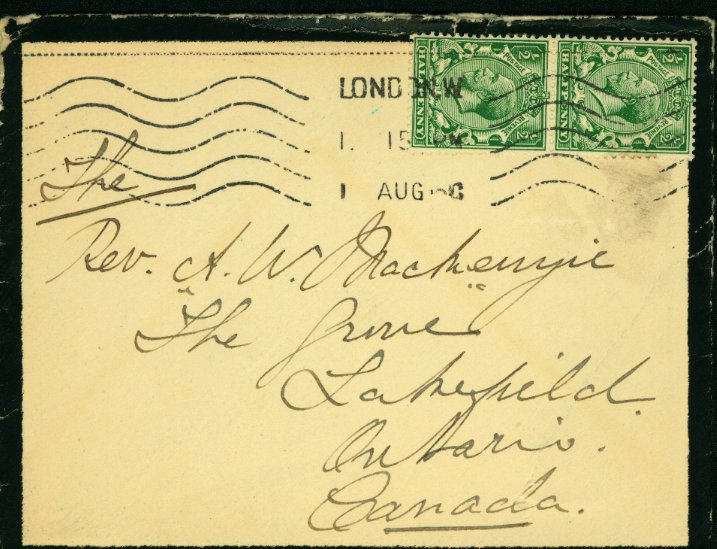 LONDON.W
1. 15 PM
1 AUG
½ POSTAGE REVENUE HALFPENNY ½
½ POSTAGE REVENUE HALFPENNY ½
The
Rev. A. W. Mackenzie
"The Grove"
Lakefield.
Ontario.
Canada.